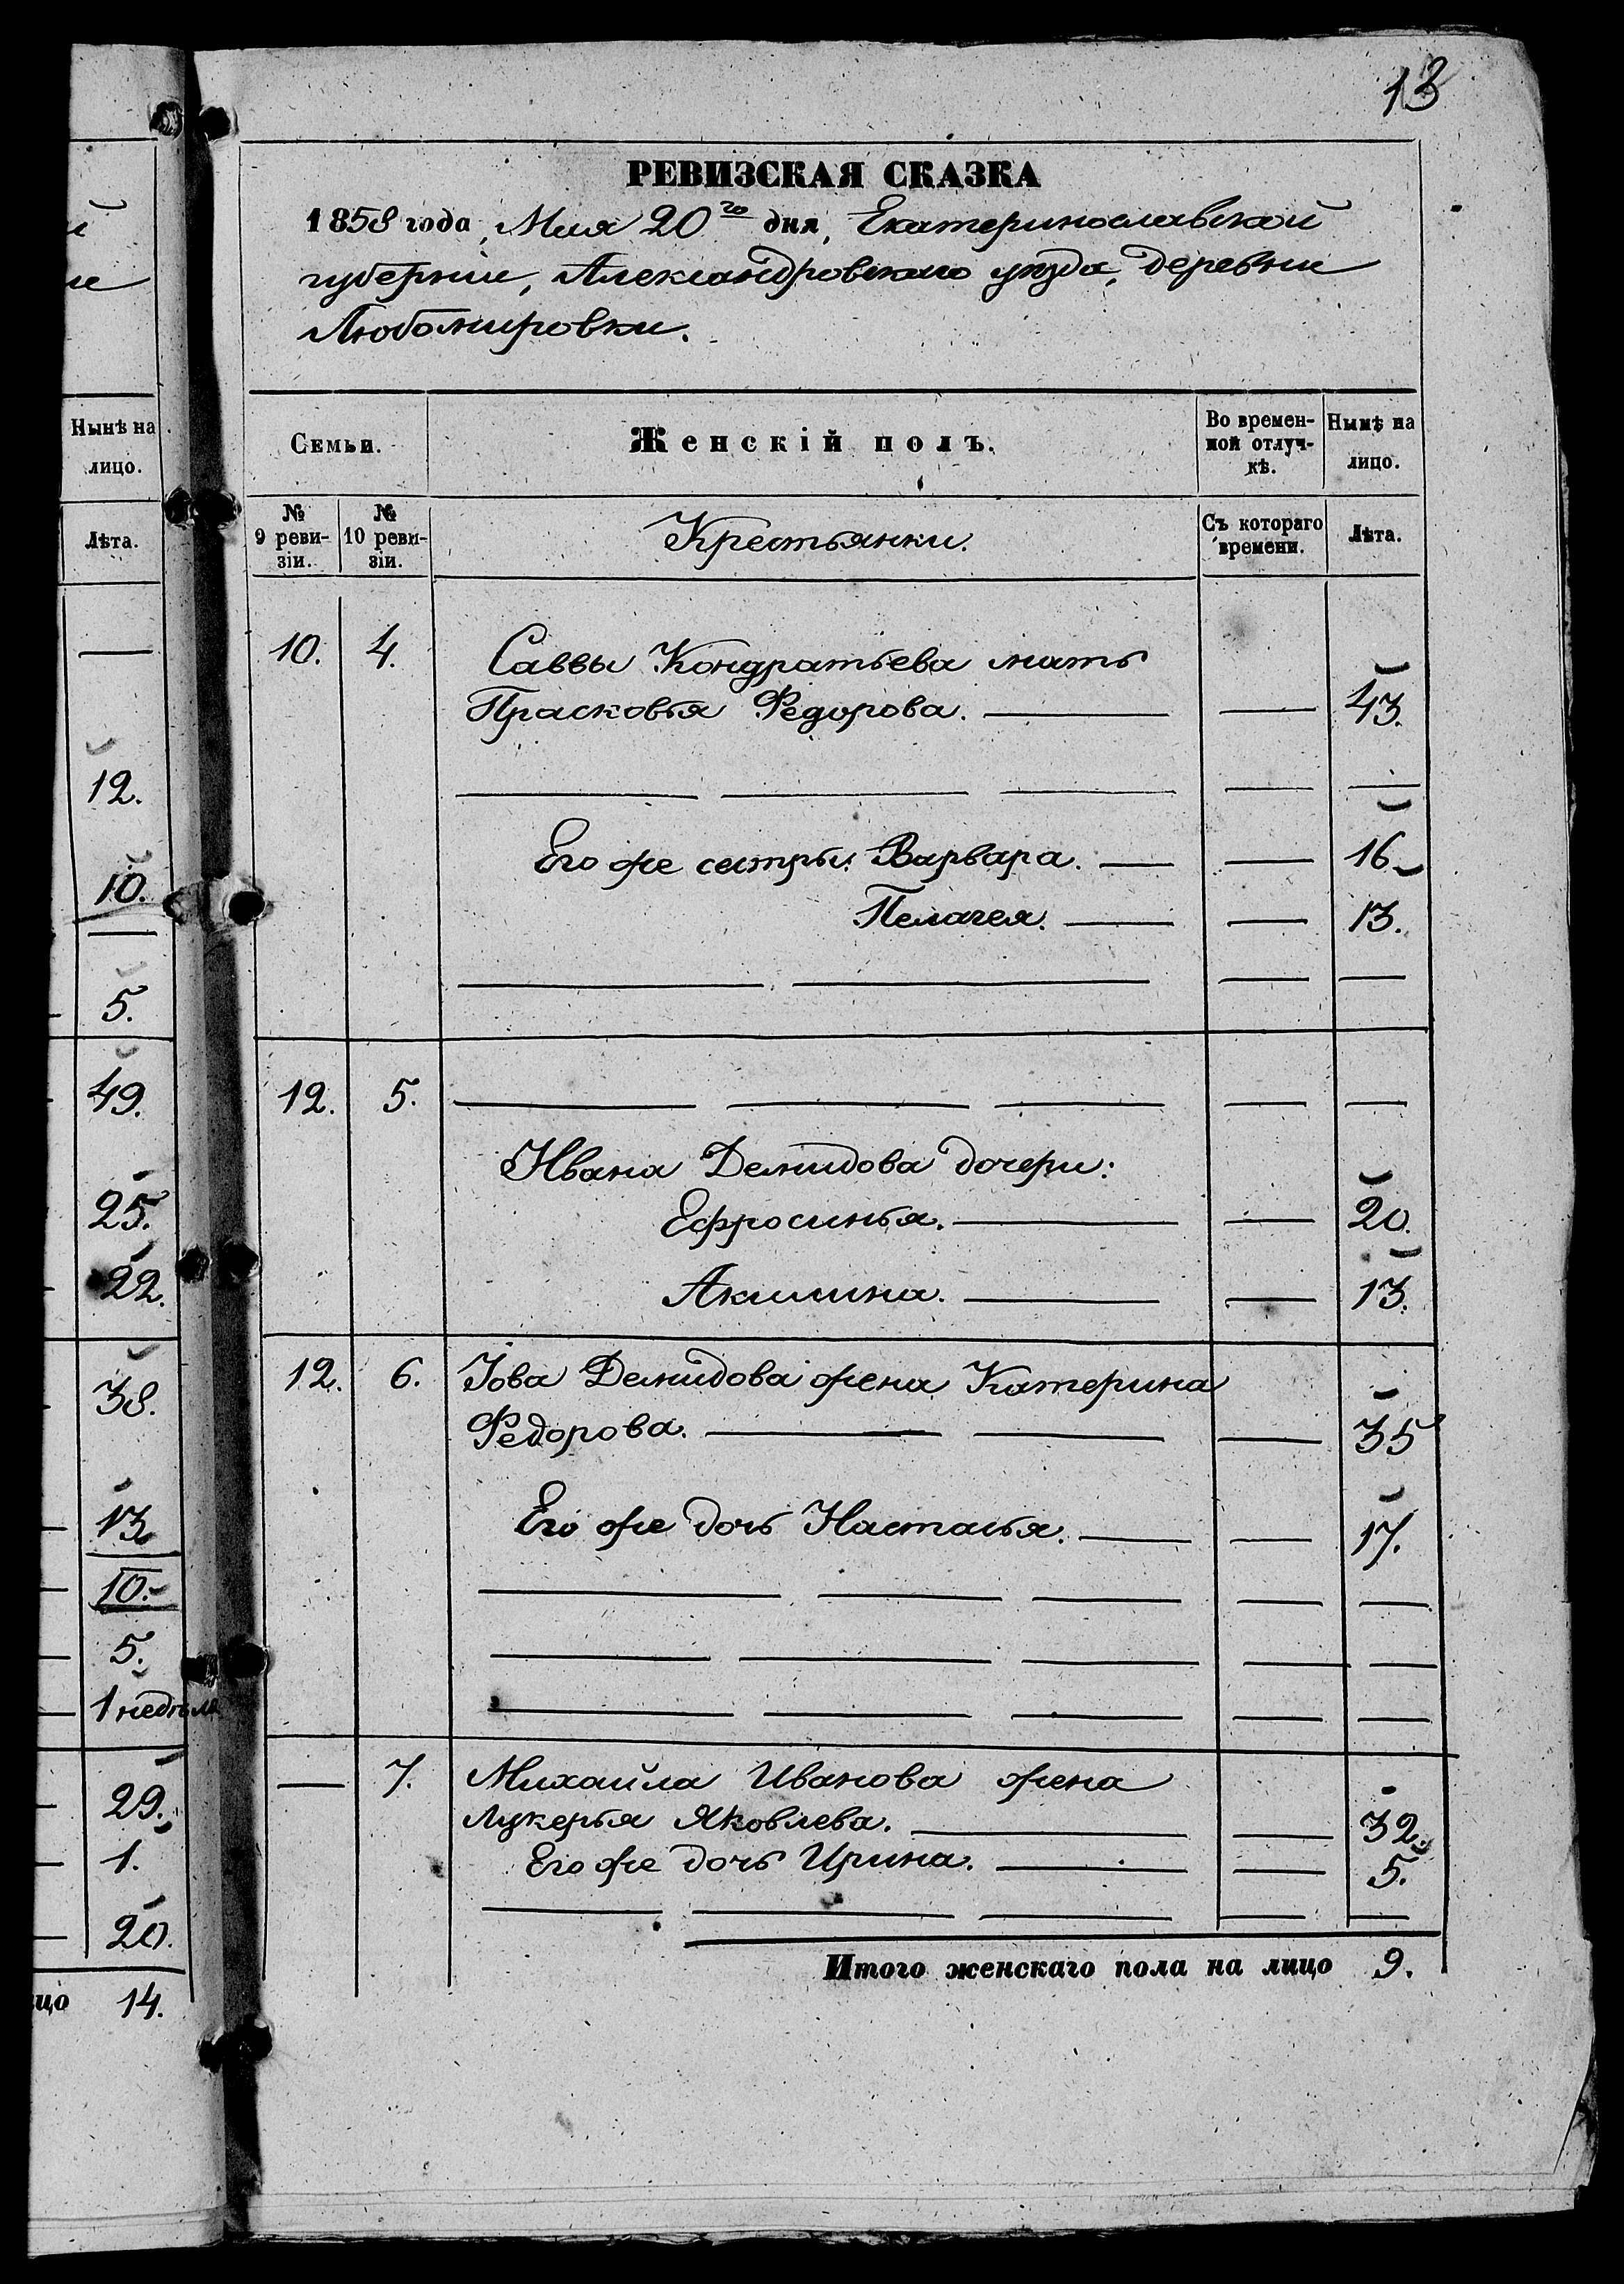 13
РЕВИЗСКАЯ СКАЗКА
1858 года, Мая 20го дня, Екатеринославской
губернии, Александровскаго уѣзда, деревни
Любомировки.
Нынѣ на
лицо.
Лѣта.
Семьи.
Женскій полъ.
Во времен-
ной отлуч-
кѣ.
Нынѣ на
лицо.
№
9 реви-
зіи.
№
10 реви-
зіи.
Крестьянки.
Съ котораго
времени.
Лѣта.
10. 4. Саввы Кондратьева мать
Прасковья Федорова. 43.
Его же сестры: Варвара. 16
Пелагея. 13.
12. 5.
Ивана Демидова дочери:
Ефросинья. 20.
Акилина. 13.
12. 6. Іова Демидова жена Катерина
Федорова. 35
Его же дочь Настасья. 17.
7. Михайла Иванова жена
Лукерья Яковлева. 32.
Его же дочь Ирина. 5.
Итого женскаго пола на лицо 9.
12.
10.
5.
49.
25.
22.
38.
13
10.
5.
1 недѣля
29.
1.
20.
цо 14.